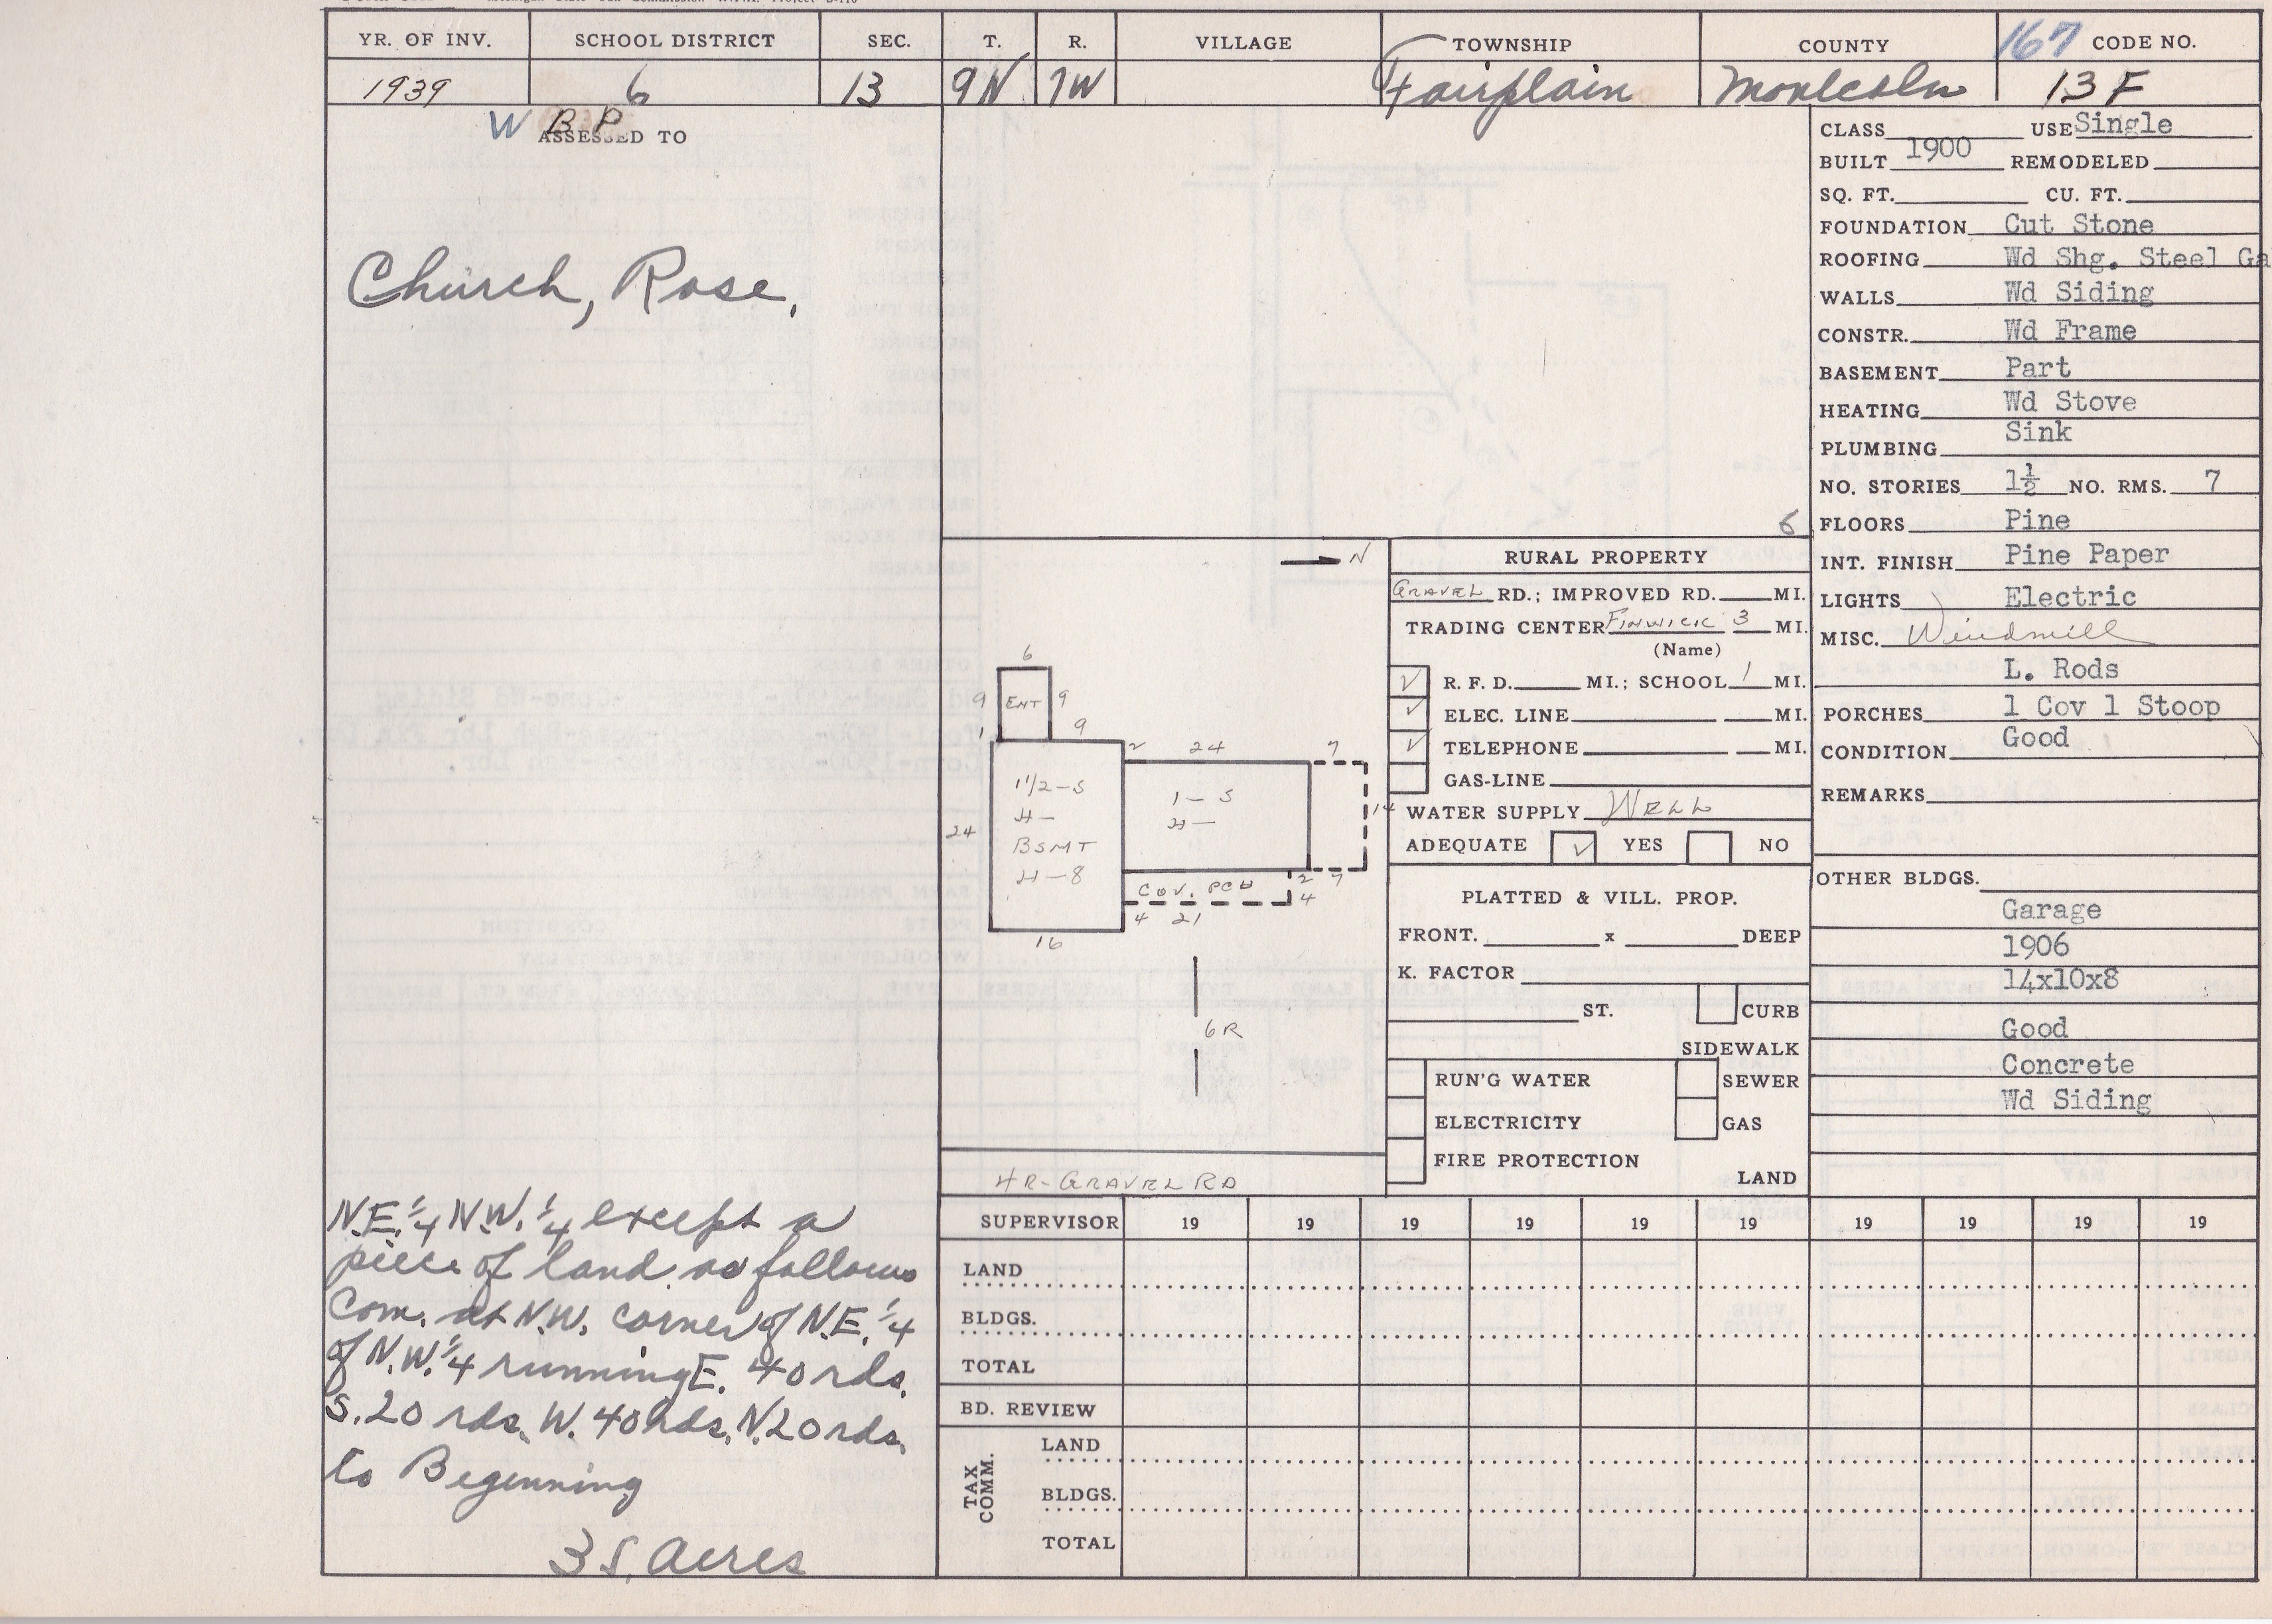 YR. OF INV. SCHOOL DISTRICT SEC. T. R. VILLAGE TOWNSHIP COUNTY 167 CODE NO.
1939 6 13 9N 7W Fairplain Montcalm 13 F
W B P
ASSESSED TO
Church, Rose,
N.E. 1/4 N.W. 1/4 except a
piece of land as follows
Com. at N.W. corner of N.E. 1/4
of N.W. 1/4 running E. 40 rds.
S. 20 rds. W. 40 rds. N. 20 rds.
to Beginning
35. Acres
N
6
9 ENT 9
1 9
2 24 7
1 1/2-S
H-
BSMT
H-8
1-S
H-
14
24
COV. PCH
2 7
4
4 21
16
6R
4R-GRAVEL RD
6
RURAL PROPERTY
GRAVEL RD.; IMPROVED RD. MI.
TRADING CENTER FINWICK 3 MI.
(Name)
✓ R. F. D. MI.; SCHOOL 1 MI.
✓ ELEC. LINE MI.
✓ TELEPHONE MI.
GAS-LINE
WATER SUPPLY WELL
ADEQUATE ✓ YES NO
PLATTED & VILL. PROP.
FRONT. x DEEP
K. FACTOR
ST. CURB
SIDEWALK
RUN'G WATER SEWER
ELECTRICITY GAS
FIRE PROTECTION
LAND
CLASS USE Single
BUILT 1900 REMODELED
SQ. FT. CU. FT.
FOUNDATION Cut Stone
ROOFING Wd Shg. Steel Ga
WALLS Wd Siding
CONSTR. Wd Frame
BASEMENT Part
HEATING Wd Stove
PLUMBING Sink
NO. STORIES 1½ NO. RMS. 7
FLOORS Pine
INT. FINISH Pine Paper
LIGHTS Electric
MISC. Windmill
L. Rods
PORCHES 1 Cov 1 Stoop
CONDITION Good
REMARKS
OTHER BLDGS.
Garage
1906
14x10x8
Good
Concrete
Wd Siding
SUPERVISOR 19 19 19 19 19 19 19 19 19 19
LAND
BLDGS.
TOTAL
BD. REVIEW
TAX COMM.
LAND
BLDGS.
TOTAL